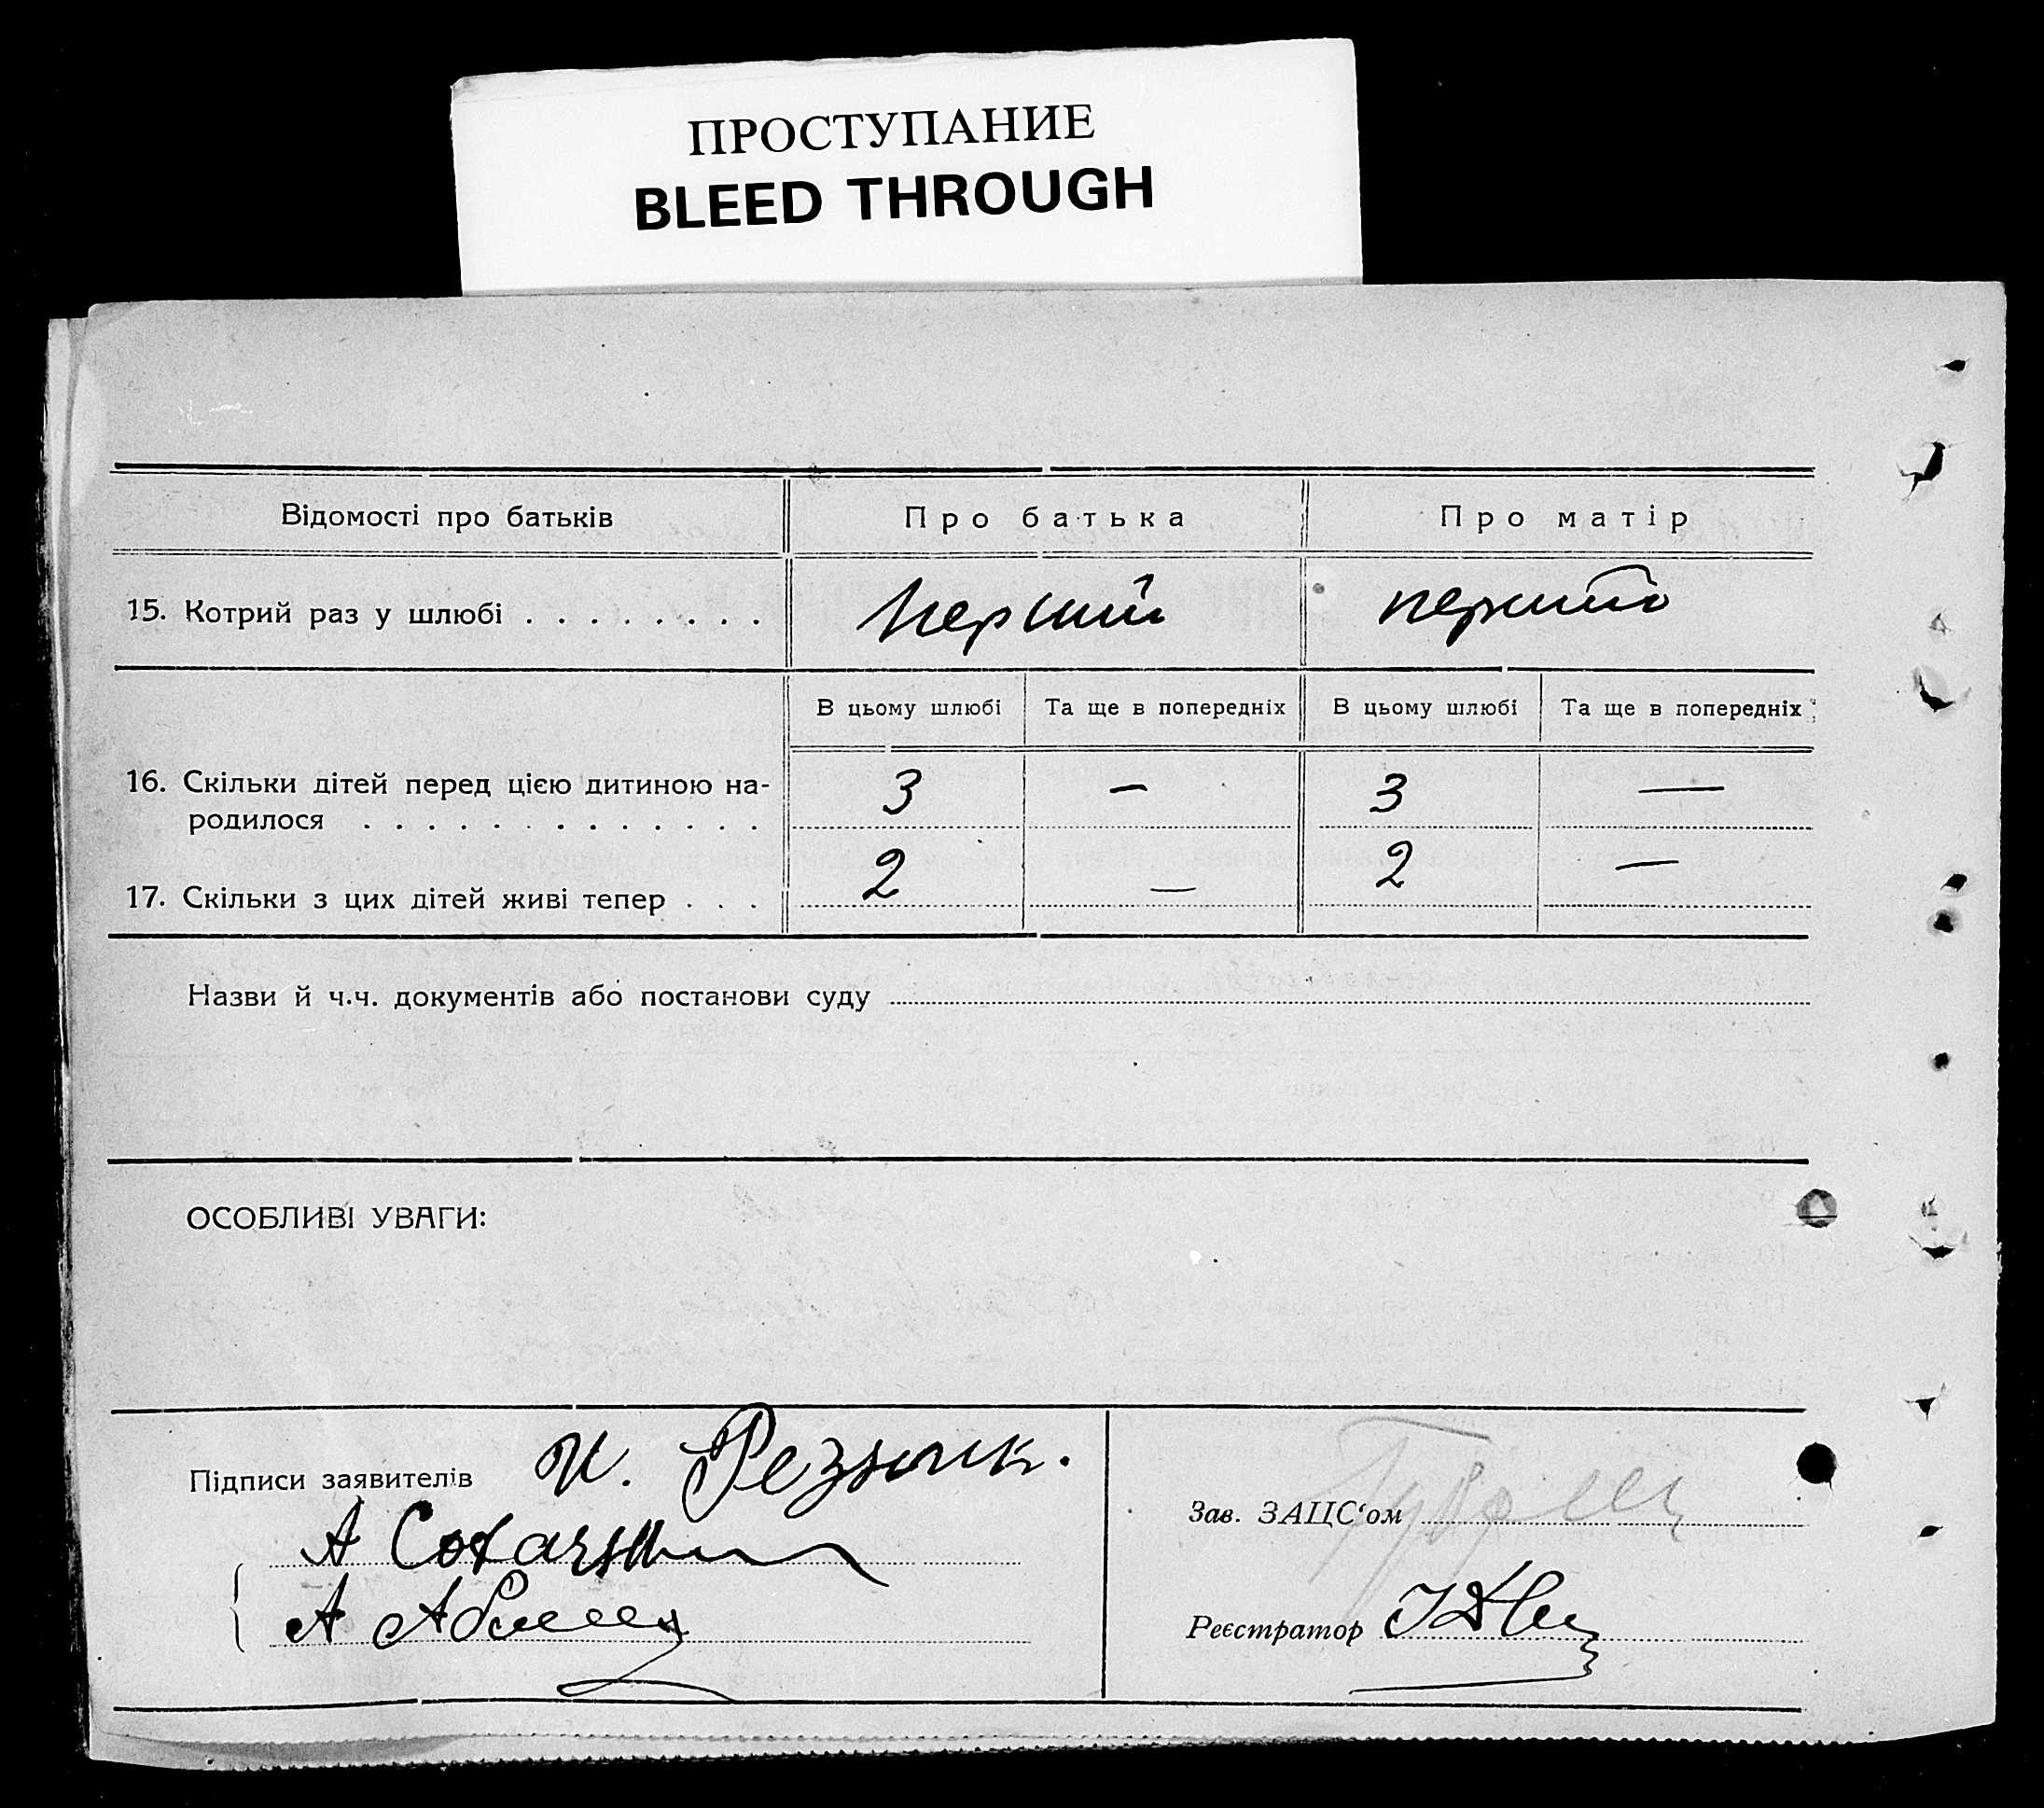 ПРОСТУПАНИЕ
BLEED THROUGH
Відомості про батьків Про батька Про матір
15. Котрий раз у шлюбі . . . . . . . . перший
В цьому шлюбі Та ще в попередніх В цьому шлюбі Та ще в попередніх
16. Скільки дітей перед цією дитиною на-
родилося . . . . . . . . . . . . . . 3 — 3 —
17. Скільки з цих дітей живі тепер . . . 2 — 2 —
Назви й ч.ч. документів або постанови суду
ОСОБЛИВІ УВАГИ:
Підписи заявителів И. Резник.
А
А
Зав. ЗАЦС‘ом
Реєстратор